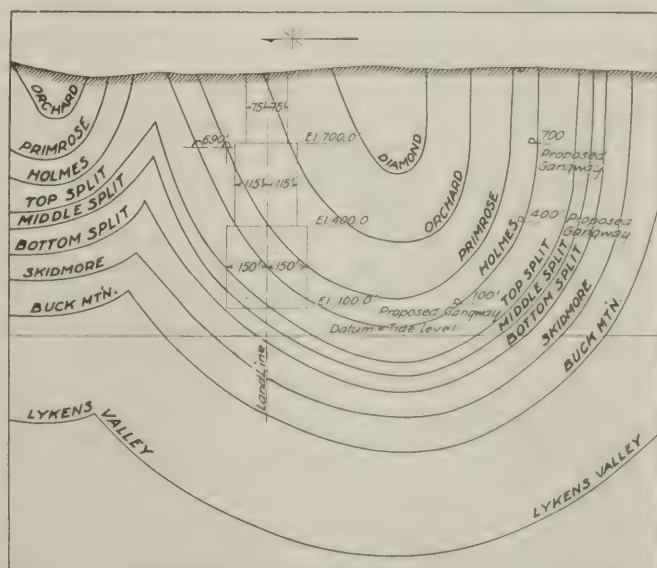 ORCHARD
PRIMROSE
HOLMES
TOP SPLIT
MIDDLE SPLIT
BOTTOM SPLIT
SKIDMORE
BUCK MT'N.
LYKENS VALLEY
75' 75'
690'
El. 700.0'
115' 115'
El. 400.0
150' 150'
El. 100.0'
Land Line
DIAMOND
ORCHARD
PRIMROSE
HOLMES
TOP SPLIT
MIDDLE SPLIT
BOTTOM SPLIT
SKIDMORE
BUCK MT'N.
LYKENS VALLEY
700
Proposed
Gangway
400' Proposed
Gangway
100'
Proposed Gangway
Datum = Tide level